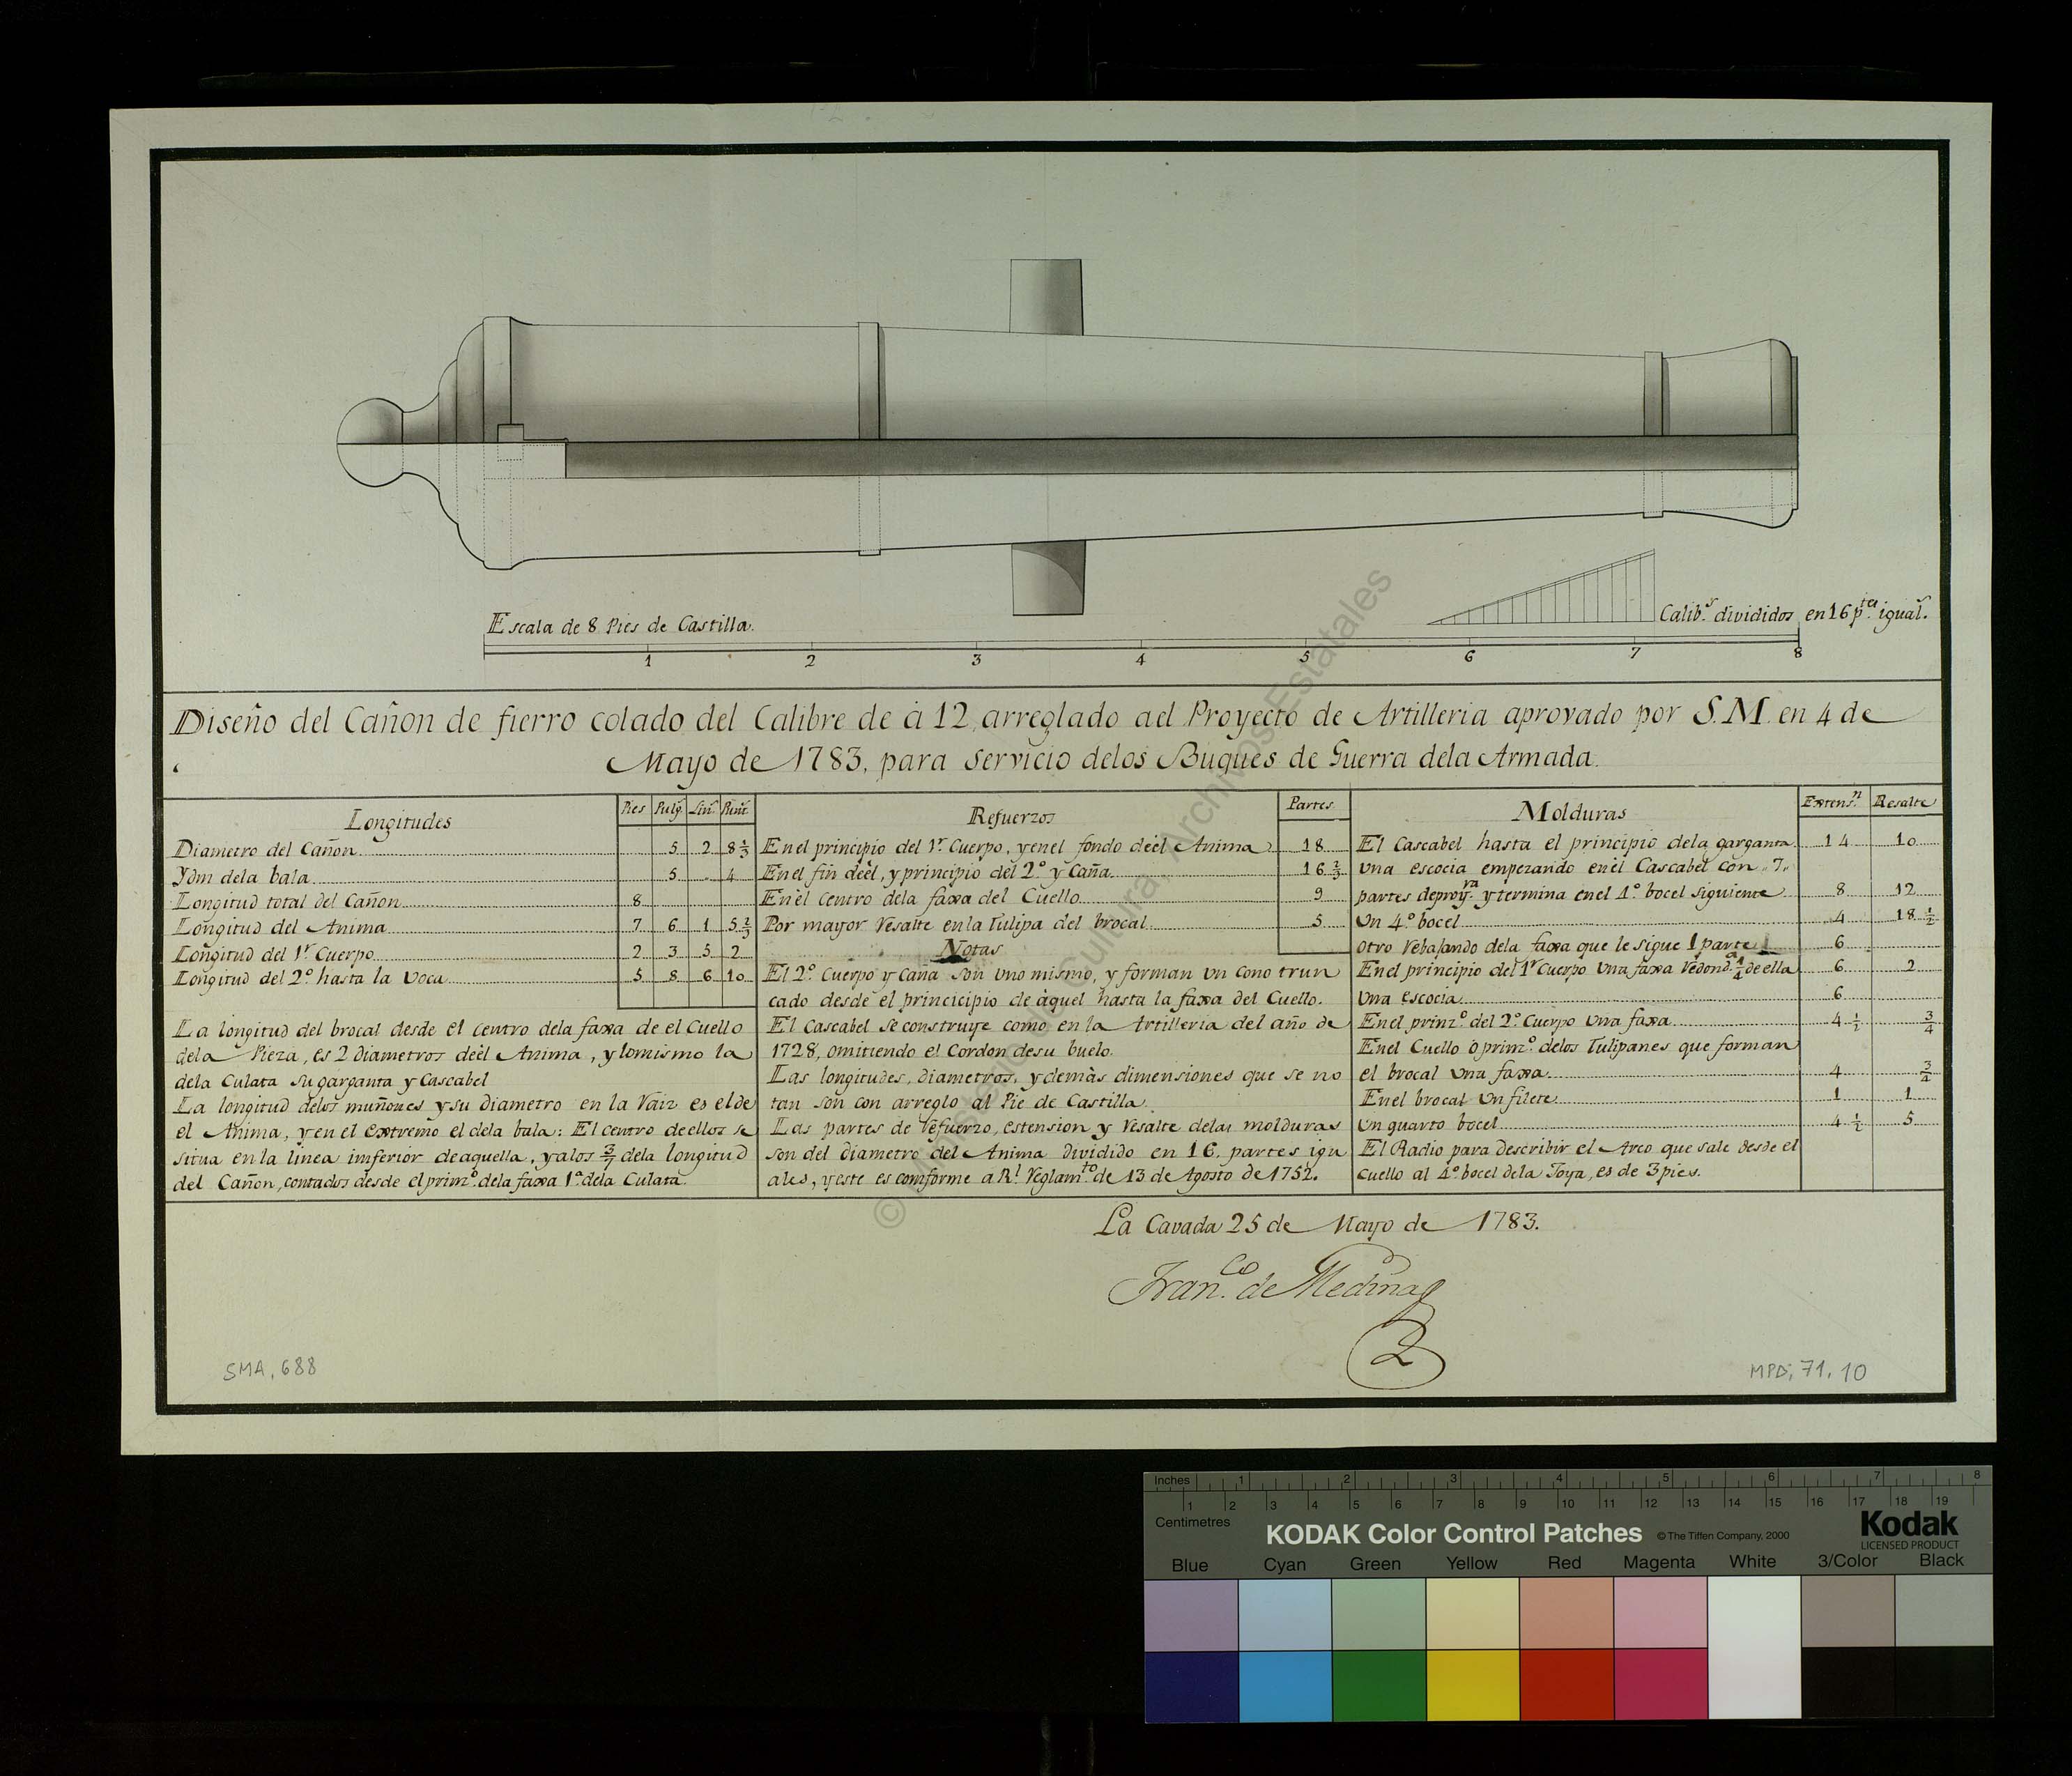 Escala de 8 Pies de Castilla.
Calib.s divididos en 16 p.tes igual.s
1 2 3 4 5 6 7 8
Diseño del Cañon de fierro colado del Calibre de à 12, arreglado ael Proyecto de Artilleria aprovado por S.M. en 4 de
Mayo de 1783, para Servicio delos Buques de Guerra dela Armada.
Longitudes Pies Pulg.s Lin.s Punt.s
Diametro del Cañon 5 2 8 1/3
Ydm dela bala 5 . 4
Longitud total del Cañon 8
Longitud del Anima 7 6 1 5 2/3
Longitud del 1.r Cuerpo 2 3 5 2
Longitud del 2.º hasta la Voca 5 8 6 10
La longitud del brocal desde el centro dela faxa de el Cuello
dela Pieza, es 2 diametros deèl Anima, y lomismo la
dela Culata su garganta y Cascabel
La longitud delos muñones y su diametro en la Vaiz es el de
el Anima, y en el extremo el dela bala: El centro de ellos se
situa en la linea imferior de aquella, y alos 3/7 dela longitud
del Cañon, contados desde el prim.º dela faxa 1.ª dela Culata.
Refuerzos Partes
En el principio del 1.r Cuerpo, y enel fondo deèl Anima 18
En el fin deèl, y principio del 2.º y Caña 16 2/3
En èl centro dela faxa del Cuello 9
Por mayor Vesalte en la Tulipa del brocal 5
Notas
El 2.º Cuerpo y Caña son uno mismo, y forman un cono trun
cado desde el princicipio de àquel hasta la faxa del Cuello.
El Cascabel se construye como en la Artilleria del año de
1728, omitiendo el Cordon desu buelo.
Las longitudes, diametros, y demàs dimensiones que se no
tan son con arreglo al Pie de Castilla.
Las partes de Vefuerzo, estension y Vesalte delas molduras
son del diametro del Anima dividido en 16. partes igu
ales, y este es comforme a R.l Veglam.to de 13 de Agosto de 1752.
Molduras Extens.n Resalte
El Cascabel hasta el principio dela garganta 14 10
Una escocia empezando enèl Cascabel con „7„
partes de proy.ra y termina en el 4.º bocel siguiente 8 12
Un 4.º bocel 4 18 1/2
Otro Vebajando dela faxa que le sigue 1 parte 6
En el principio del 1.r Cuerpo Una faxa Vedond.da 1/4 de ella 6 2
Una escocia 6
En el prinz.º del 2.º Cuerpo Una faxa 4 1/2 3/4
En el Cuello ò prim.º delos Tulipanes que forman
el brocal Una faxa 4 3/4
En el brocal Un filete 1 1
Un quarto bocel 4 1/2 5
El Radio para describir el Arco que sale desde el
cuello al 4.º bocel dela Joya, es de 3 pies.
La Cavada 25 de Mayo de 1783.
Fran.co de Medina
2
SMA, 688
MPD, 71, 10
© Ministerio de Cultura, Archivos Estatales
Inches 1 2 3 4 5 6 7 8
1 2 3 4 5 6 7 8 9 10 11 12 13 14 15 16 17 18 19
Centimetres
KODAK Color Control Patches © The Tiffen Company, 2000 Kodak
LICENSED PRODUCT
Blue Cyan Green Yellow Red Magenta White 3/Color Black